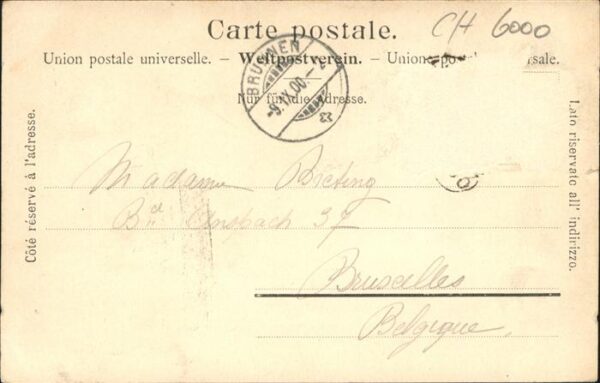 Carte postale.
CH 6000
Union postale universelle. – Weltpostverein. – Unione postale universale.
Nur für die Adresse.
BRUNNEN
-9.IX.00.-
Côté réservé à l'adresse.
Lato riservato all' indirizzo.
Madame
Bd Anspach 37
Bruxelles
Belgique.